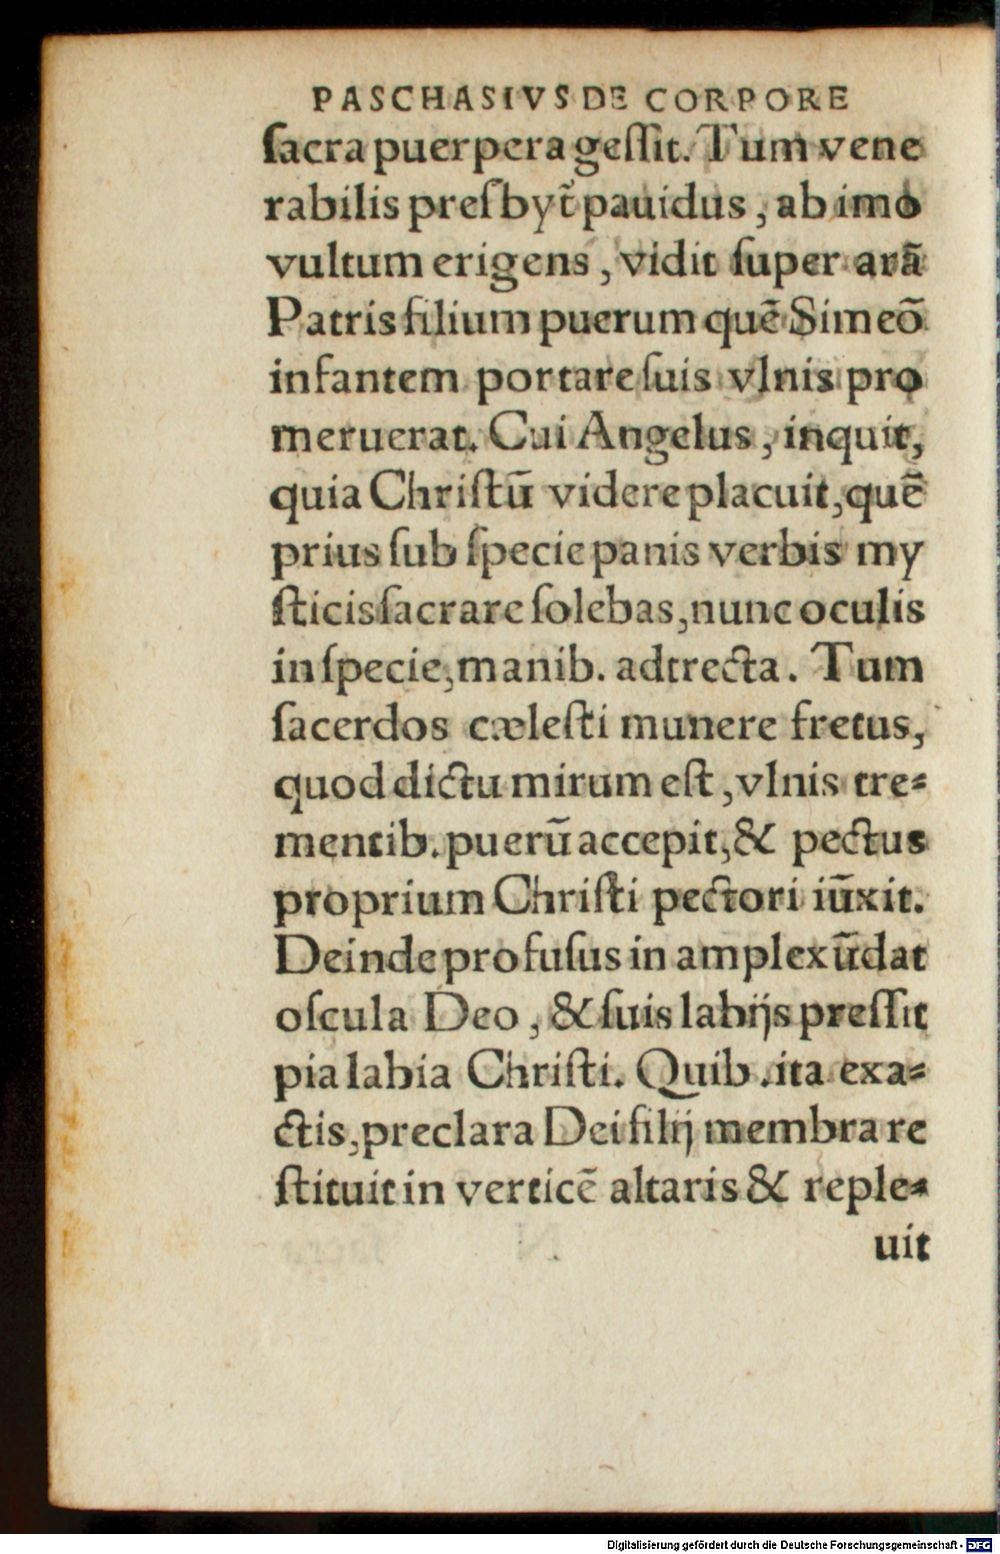 PASCHASIVS DE CORPORE
ſacra puerpera geſſit. Tum vene
rabilis preſbyt̃ pauidus, ab imo
vultum erigens, vidit ſuper arã
Patris filium puerum quẽ Simeõ
infantem portare ſuis vlnis pro
meruerat. Cui Angelus, inquit,
quia Chriſtũ videre placuit, quẽ
prius ſub ſpecie panis verbis my
ſticis ſacrare ſolebas, nunc oculis
inſpecie, manib. adtrecta. Tum
ſacerdos cæleſti munere fretus,
quod dictu mirum eſt, vlnis tre⸗
mentib. puerũ accepit, & pectus
proprium Chriſti pectori iũxit.
Deinde profuſus in amplexũ dat
oſcula Deo, & ſuis labijs preſſit
pia labia Chriſti. Quib. ita exa⸗
ctis, preclara Dei filij membra re
ſtituit in verticẽ altaris & reple⸗
uit
Digitalisierung gefördert durch die Deutsche Forschungsgemeinschaft - DFG